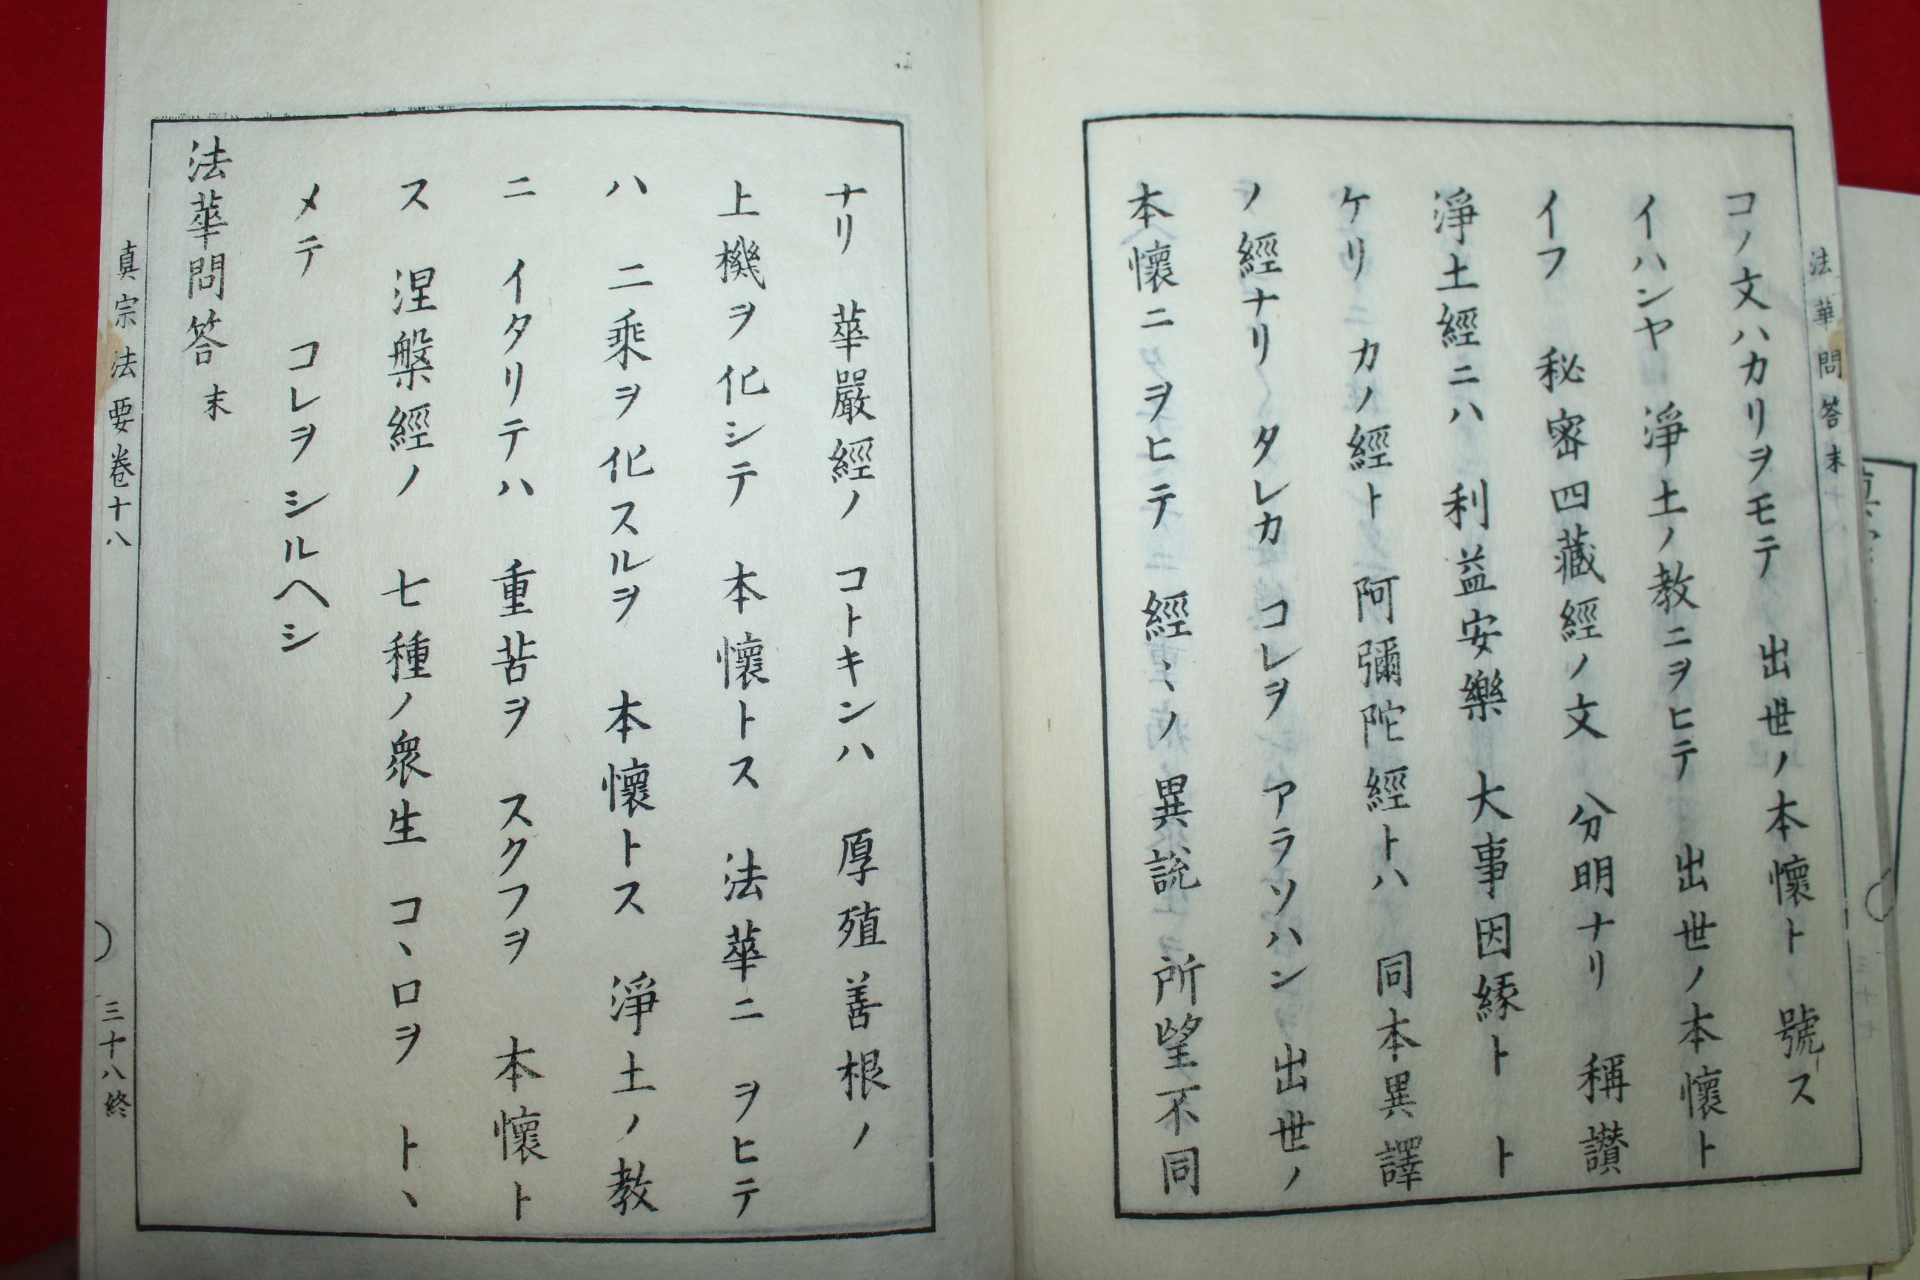 コノ文ハカリヲモテ 出世ノ本懷ト 號ス
イハンヤ 淨土ノ教ニヲヒテ 出世ノ本懷ト
イフ 秘密四藏經ノ文 分明ナリ 稱讃
淨土經ニハ 利益安樂 大事因緣ト ト
ケリ カノ經ト 阿彌陀經トハ 同本異譯
ノ經ナリ タレカ コレヲ アラソハン 出世ノ
本懷ニヲヒテ 經〻ノ 異說 所望不同
ナリ 華嚴經ノ コトキンハ 厚殖善根ノ
上機ヲ化シテ 本懷トス 法華ニ ヲヒテ
ハ 二乘ヲ化スルヲ 本懷トス 淨土ノ教
ニ イタリテハ 重苦ヲ スクフヲ 本懷ト
ス 涅槃經ノ 七種ノ衆生 コヽロヲ トヽ
メテ コレヲ シルヘシ
法華問答 末
法華問答末
真宗法要卷十八
三十八終